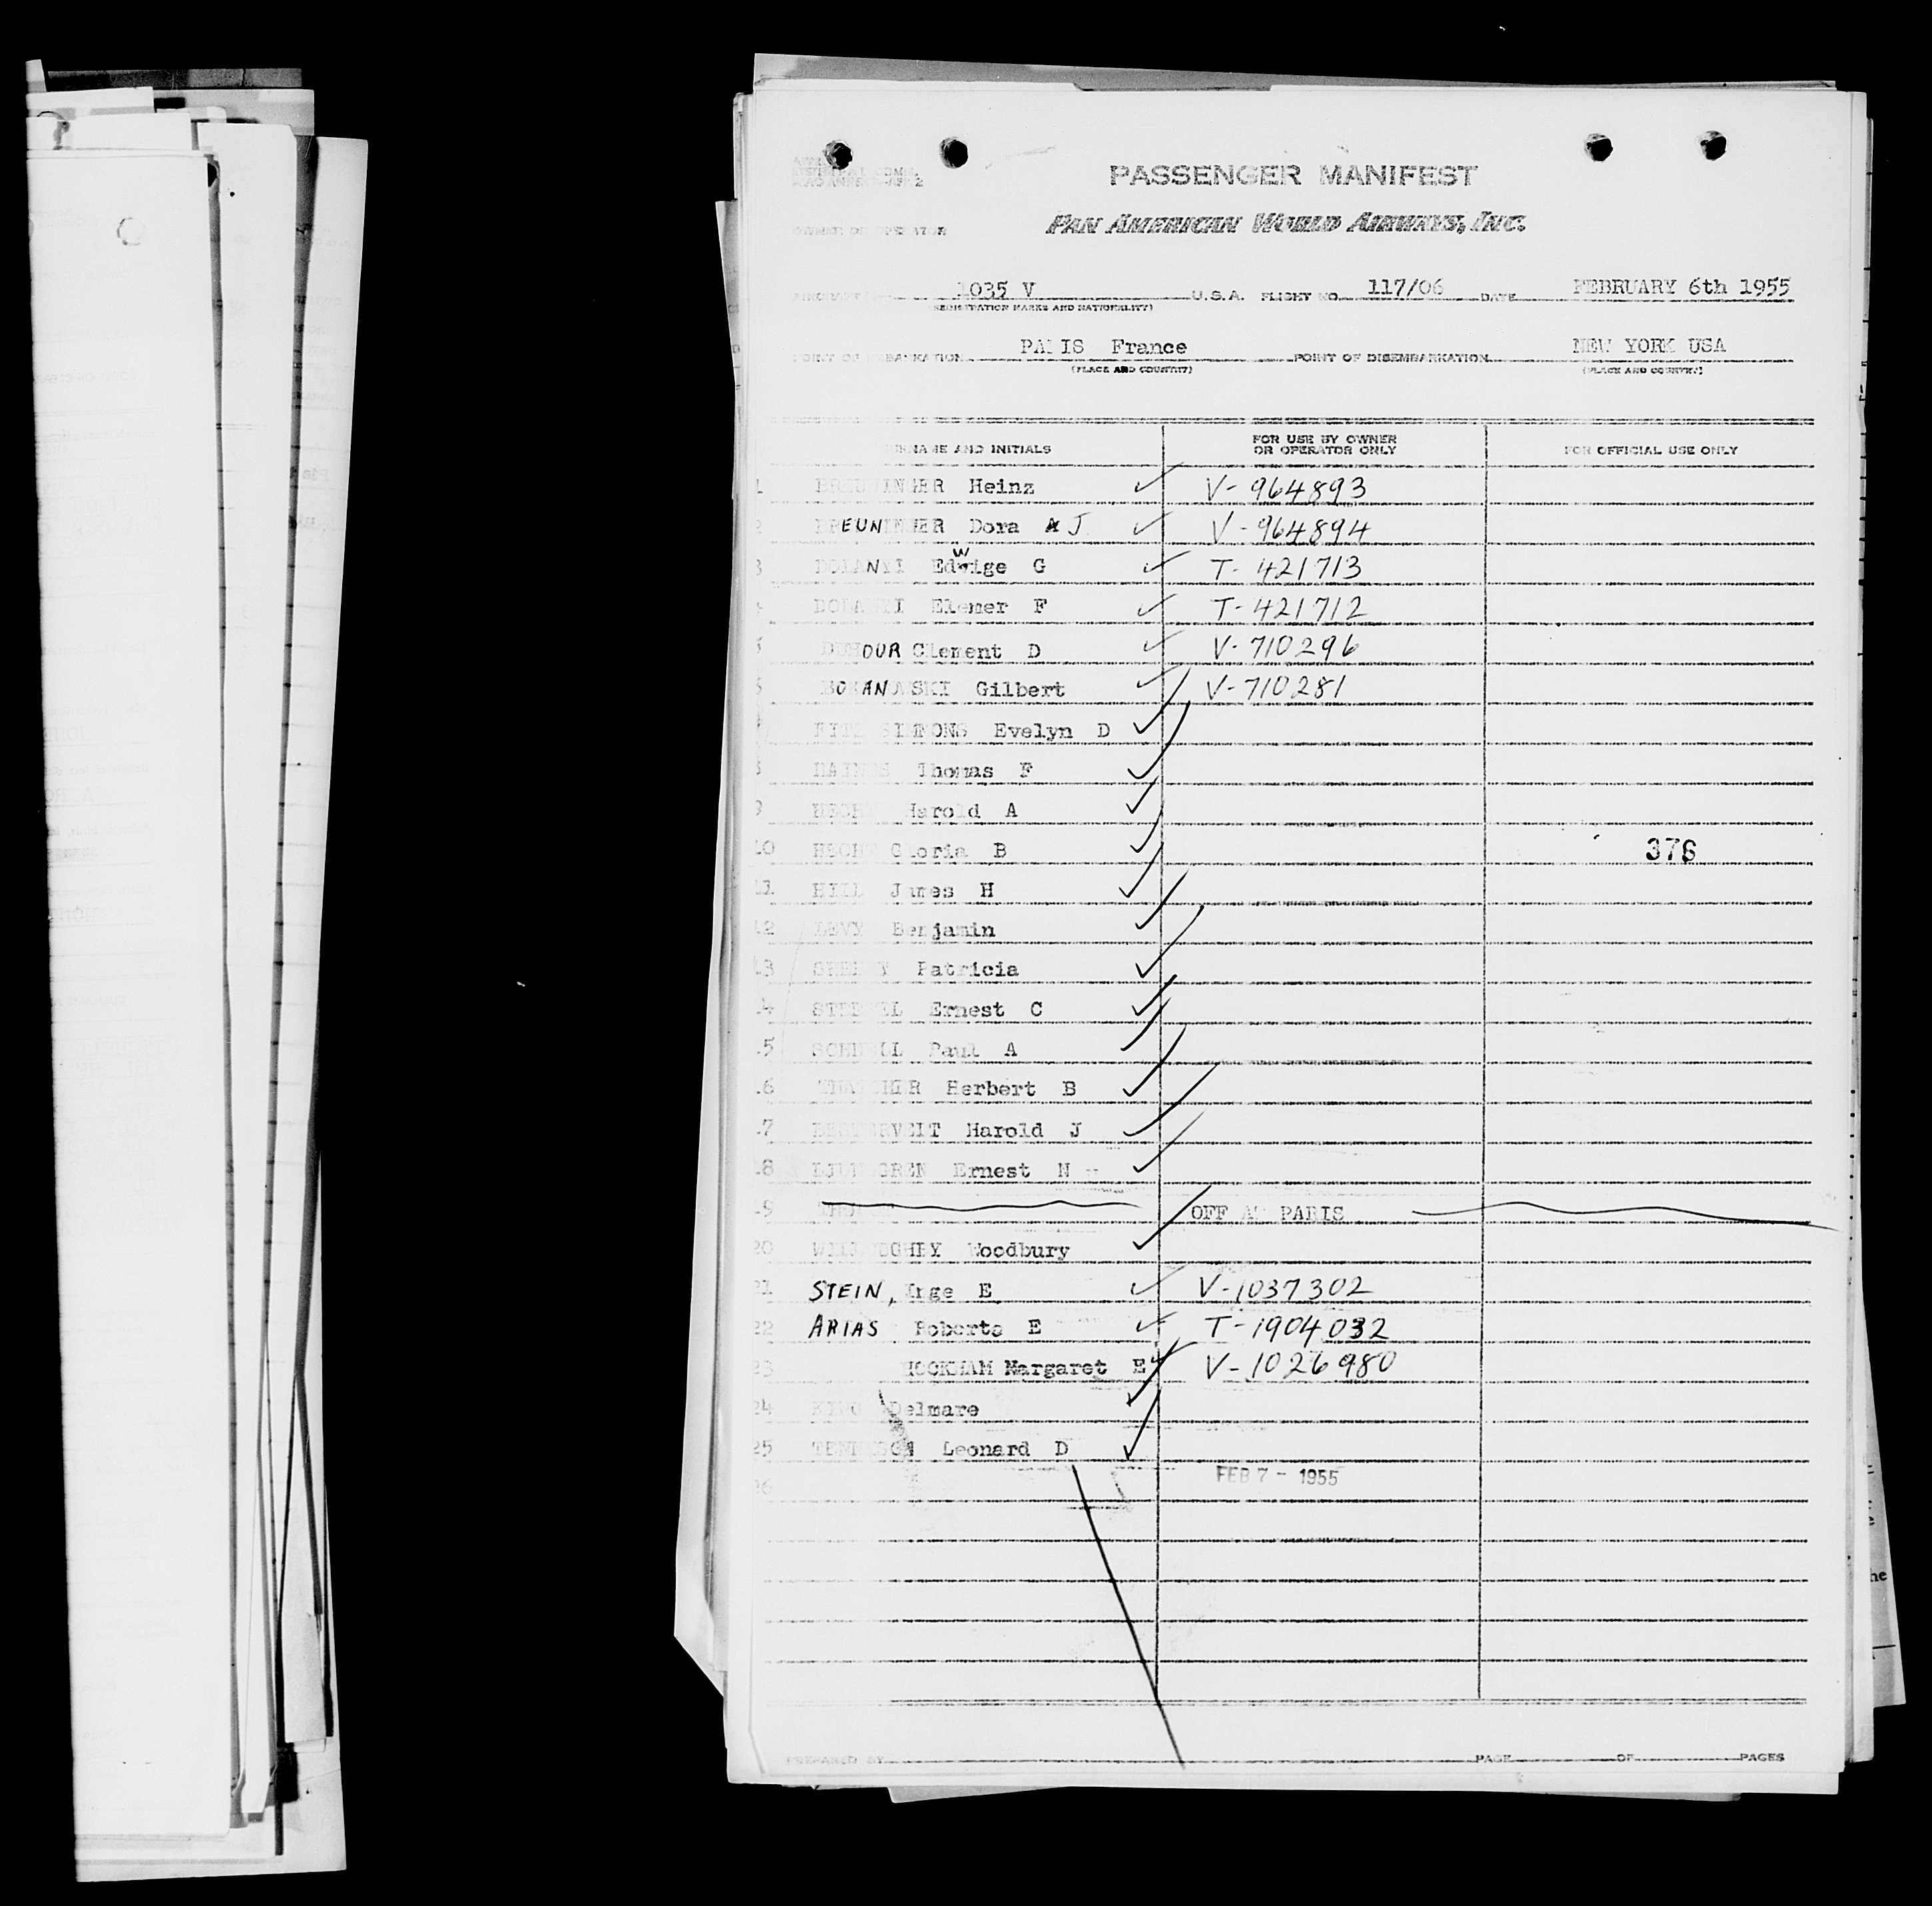 PASSENGER MANIFEST
PAN AMERICAN WORLD AIRWAYS, INC.
OWNER OR OPERATOR
1035 V U.S.A. FLIGHT NO. 117/06 DATE FEBRUARY 6th 1955
(REGISTRATION MARKS AND NATIONALITY)
POINT OF EMBARKATION PARIS France POINT OF DISEMBARKATION NEW YORK USA
(PLACE AND COUNTRY) (PLACE AND COUNTRY)
SURNAME AND INITIALS FOR USE BY OWNER OR OPERATOR ONLY FOR OFFICIAL USE ONLY
1 BREUNINGER Heinz V-964893
2 BREUNINGER Dora J V-964894
3 DOLANYI Edwige G T-421713
4 DOLANYI Elemer F T-421712
5 DUHOUR Clement D V-710296
6 BOKANOWSKI Gilbert V-710281
7 FITZSIMMONS Evelyn D
8 Thomas F
9 HECHT Harold A
10 HECHT Gloria B 376
11 HILL James H
12 LEVY Benjamin
13 Patricia
14 Ernest C
15 Paul A
16 THATCHER Herbert B
17 Harold J
18 LJUNGGREN Ernest N
19 OFF AT PARIS
20 WILLOUGHBY Woodbury
21 STEIN, Inge E V-1037302
22 ARIAS Roberto E T-1904032
23 HOOKHAM Margaret E V-1026980
24 Delmare
25 TENNESON Leonard D
26 FEB 7 - 1955
PREPARED BY PAGE OF PAGES